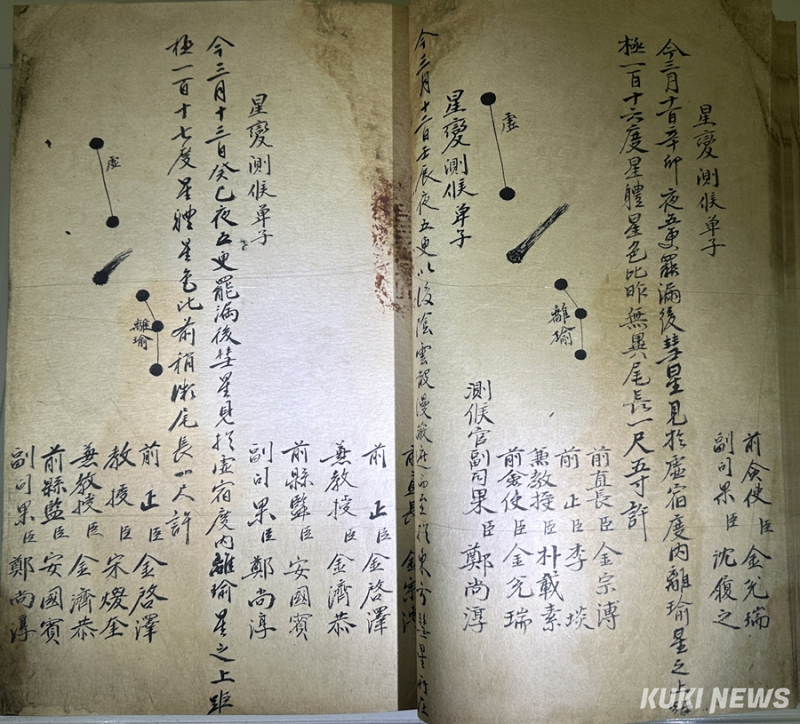 前僉使臣金兌瑞
副司果臣沈履之
星變測候單子
今三月十一日辛卯夜五更罷漏後彗星見於虛宿度內離瑜星之上距
極一百十六度星體星色比昨無異尾長一尺五寸許
虛
離瑜
前直長臣金宗溥
前正臣李埮
兼教授臣朴載素
前僉使臣金兌瑞
測候官副司果臣鄭尚淳
星變測候單子
今三月十二日壬辰夜五更以後陰雲
星變測候單子
今三月十三日癸巳夜五更罷漏後彗星見於虛宿度內離瑜星之上距
極一百十七度星體星色比前稍微尾長一尺許
虛
離瑜
前正臣金啓澤
兼教授臣金濟恭
前縣監臣安國賓
副司果臣鄭尚淳
前正臣金啓澤
教授臣宋
兼教授臣金濟恭
前縣監臣安國賓
副司果臣鄭尚淳
KUKI NEWS